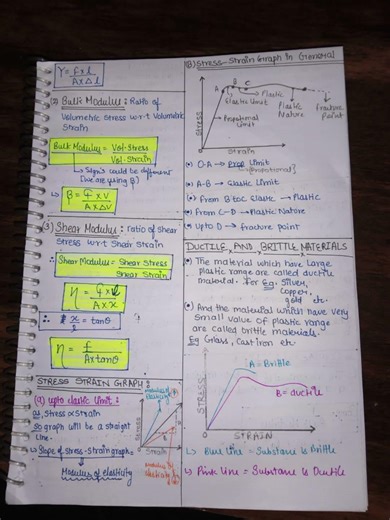 Y = F x l
A x Δ l
(2) Bulk Modulus : Ratio of
Volumetric Stress w.r.t Volumetric
Strain
Bulk Modulus = Vol. Stress
Vol. Strain
β = F x V
A x ΔV
(3) Shear Modulus : ratio of Shear
Stress w.r.t Shear Strain
∴ Shear Modulus = Shear Stress
Shear Strain
η = F x l
A x x
∴ x/l = tanθ
η = F
A x tanθ
STRESS STRAIN GRAPH :
(a) upto elastic limit :
as, Stress ∝ Strain
So graph will be a straight
line.
↳ Slope of stress-strain graph =
Modulus of elasticity
(B) Stress-Strain Graph in General
STRESS
A
B
C
D
Plastic
Elastic Limit
Proportional
Limit
Plastic
Nature
Fracture
Point
Strain
(•) O-A → Prop Limit
(proportional)
(•) A-B → Elastic Limit
(•) From B to C elastic → Plastic
(•) From C-D → Plastic Nature
(•) Upto D → fracture point
DUCTILE AND BRITTLE MATERIALS
• The material which have large
plastic range are called ductile
material. For Eg: Silver,
Copper,
gold etc.
• And the material which have very
Small value of plastic range
are called brittle materials.
Eg Glass, Cast iron etc.
STRESS
A = Brittle
B = ductile
STRAIN
↳ Blue Line = Substance is Brittle
↳ Pink Line = Substance is Ductile